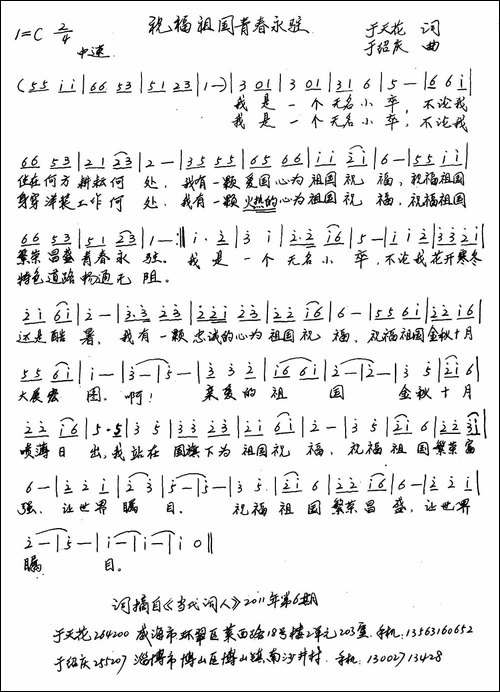 祝福祖国青春永驻
1=C 2/4 于天花 词
中速 于绍庆 曲
(55 ii|66 53|51 23|1-)|3 01|3 01|31 6|5-|6 6 i|
我是一个无名小卒,不论我
我是一个无名小卒,不论我
66 53|21 23|2-|35 55|65 66|ii 2i|6-|55 ii|
住在何方耕耘何处,我有一颗爱国心为祖国祝福,祝福祖国
身穿洋装工作何处,我有一颗火热的心为祖国祝福,祝福祖国
66 53|51 23|1-:||i·2|3 i|2·2 i6|5-|i i 2|33 2i|
繁荣昌盛青春永驻。我是一个无名小卒,不论我花开寒冬
特色道路畅通无阻。
2 i 6i|2-|2·3 23|22i 23|22 i6|6-|5 5 6i|22 i6|
还是酷暑,我有一颗忠诚的心为祖国祝福,祝福祖国金秋十月
55 6i|i-|3-|5-|3 3 2|i6 6i|2-|2-|3 5|2i 6|
大展宏图。啊!亲爱的祖国金秋十月
22 i6|5·5|3 5|33 23|2i 6i|2-|3 5|2i 6|22 3i|
喷薄日出,我站在国旗下为祖国祝福,祝福祖国繁荣富
6-|2 2 i|2 3|5-|5-|3 5|2i 6|22 i6|6-|2 2 i|
强,让世界瞩目。祝福祖国繁荣昌盛,让世界
2-|5-|i-|i-|i 0||
瞩目。
词摘自《当代词人》2011年第6期
于天花264200 威海市环翠区莱西路18号楼2单元203室.手机:13563160652
于绍庆255207 淄博市博山区博山镇南沙井村.手机:13002713428